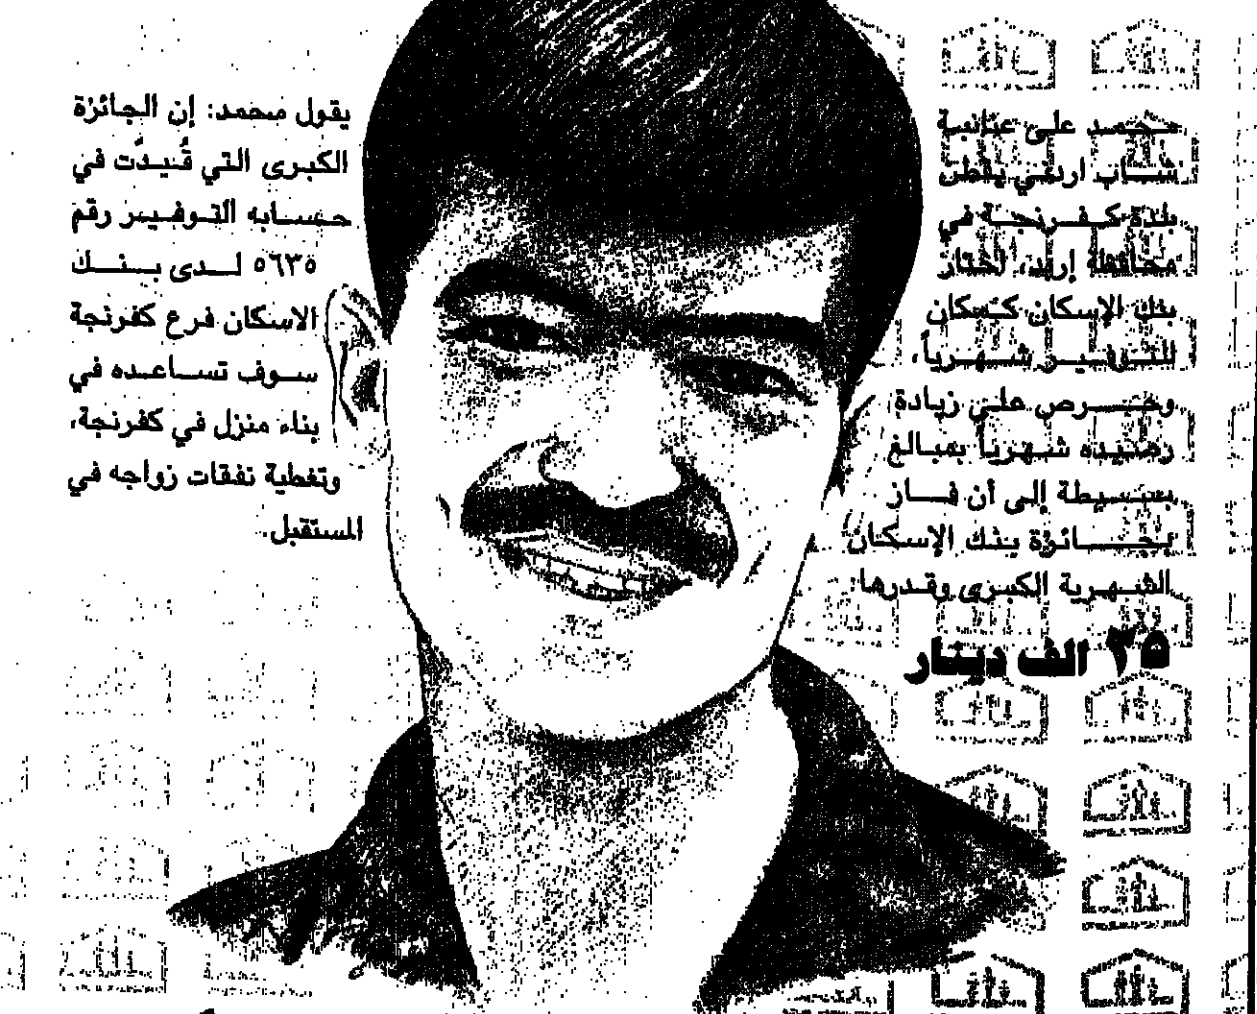 محمد علي عنانبة
شاب اردني يقطن
بلدة كفرنجة في
محافظة إربد، اختار
بنك الإسكان كمكان
للتوفير شهرياً،
وحرص على زيادة
رصيده شهرياً بمبالغ
بسيطة إلى أن فاز
بجائزة بنك الإسكان
الشهرية الكبرى وقدرها
٣٥ الف دينار
يقول محمد: إن الجائزة
الكبرى التي قُيدّت في
حسابه التوفير رقم
٥٦٣٥ لدى بنك
الاسكان فرع كفرنجة
سوف تساعده في
بناء منزل في كفرنجة،
وتغطية نفقات زواجه في
المستقبل.